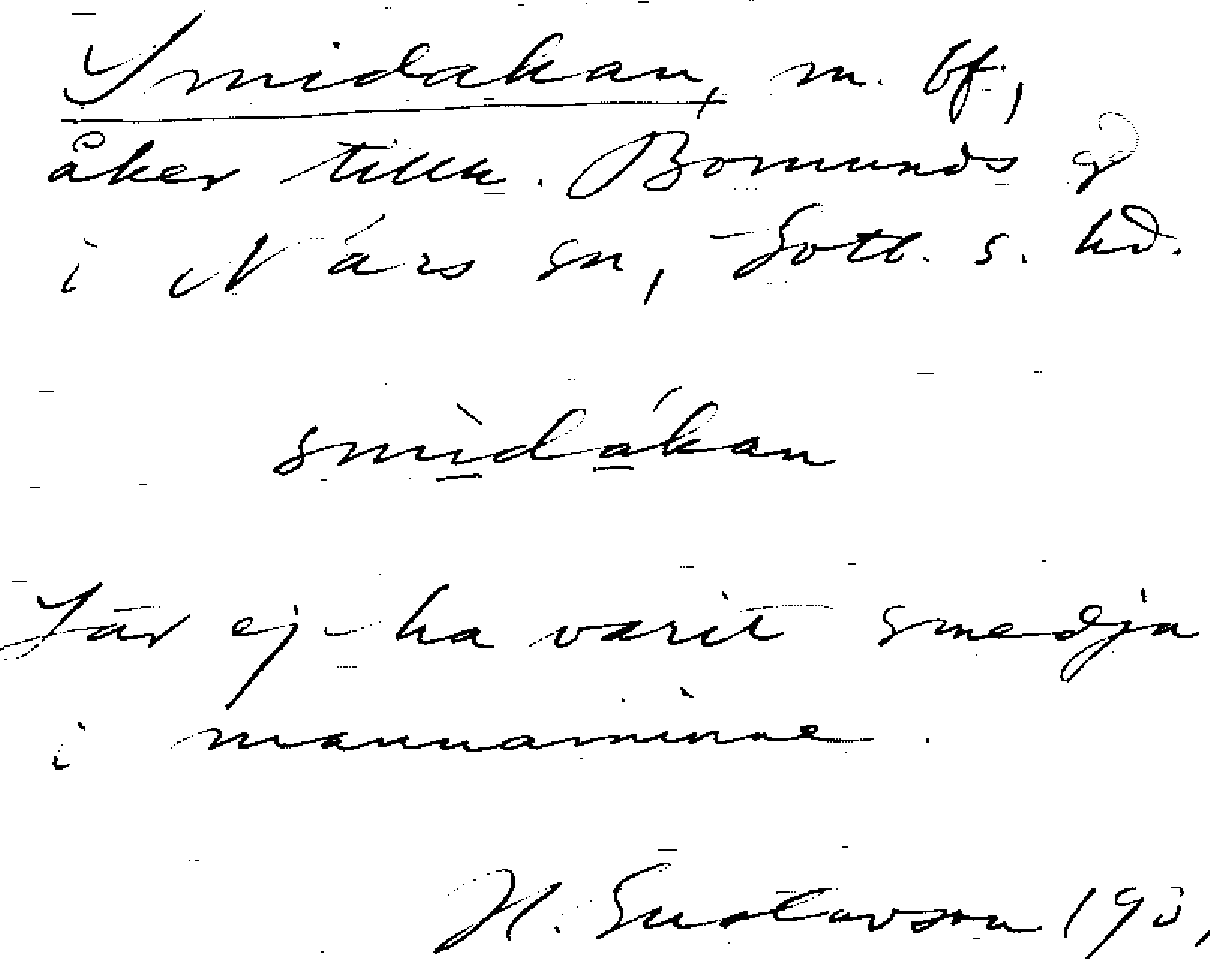 Smidakan, m. bf.,
åker tillh. Bomunds gd
i Närs sn, Gotl. s. hd.
smìdákan
Lär ej ha varit smedja
i mannaminne.
H. Gustavson